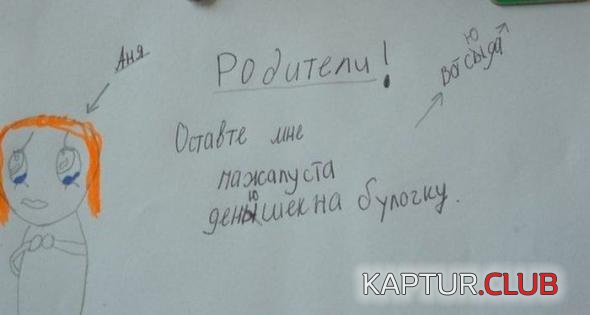 Аня
Родители!
Ю
Вот сыда
Оставте мне
пажалуста
Ю
денышек на булочку.
KAPTUR.CLUB